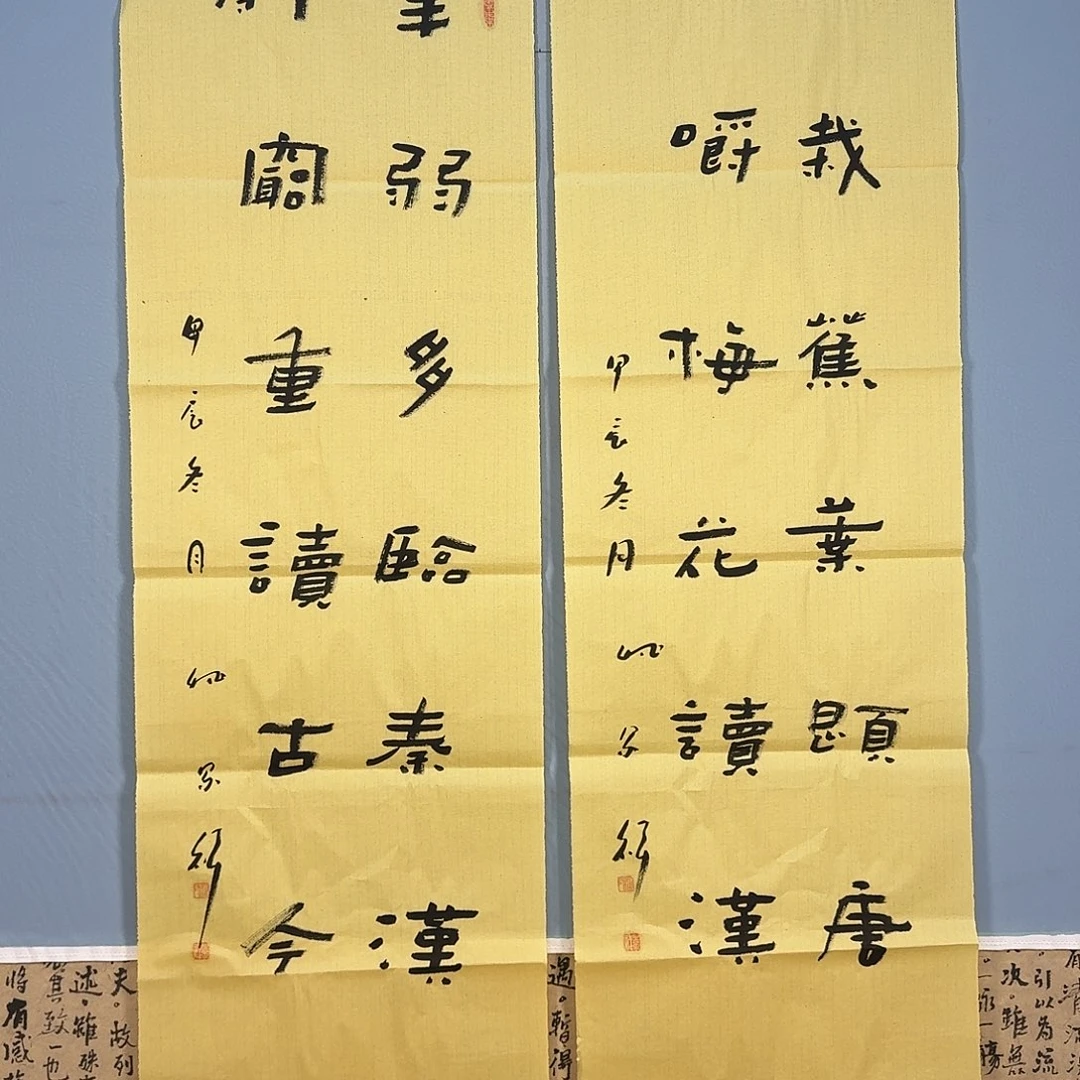 栽蕉葉題唐
嚼梅花讀漢
甲辰冬月
弱多臨秦漢
窮重讀古今
甲辰冬月
有清流
引以為流
次。雖無
一詠一觴
遇。暫得
夫。故列
述。雖殊
其致一也
將有感